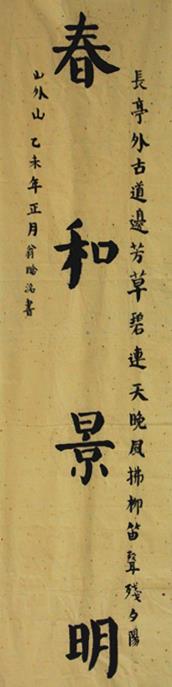 春和景明
長亭外古道邊芳草碧連天晚風拂柳笛聲殘夕陽
山外山 乙未年正月翁書